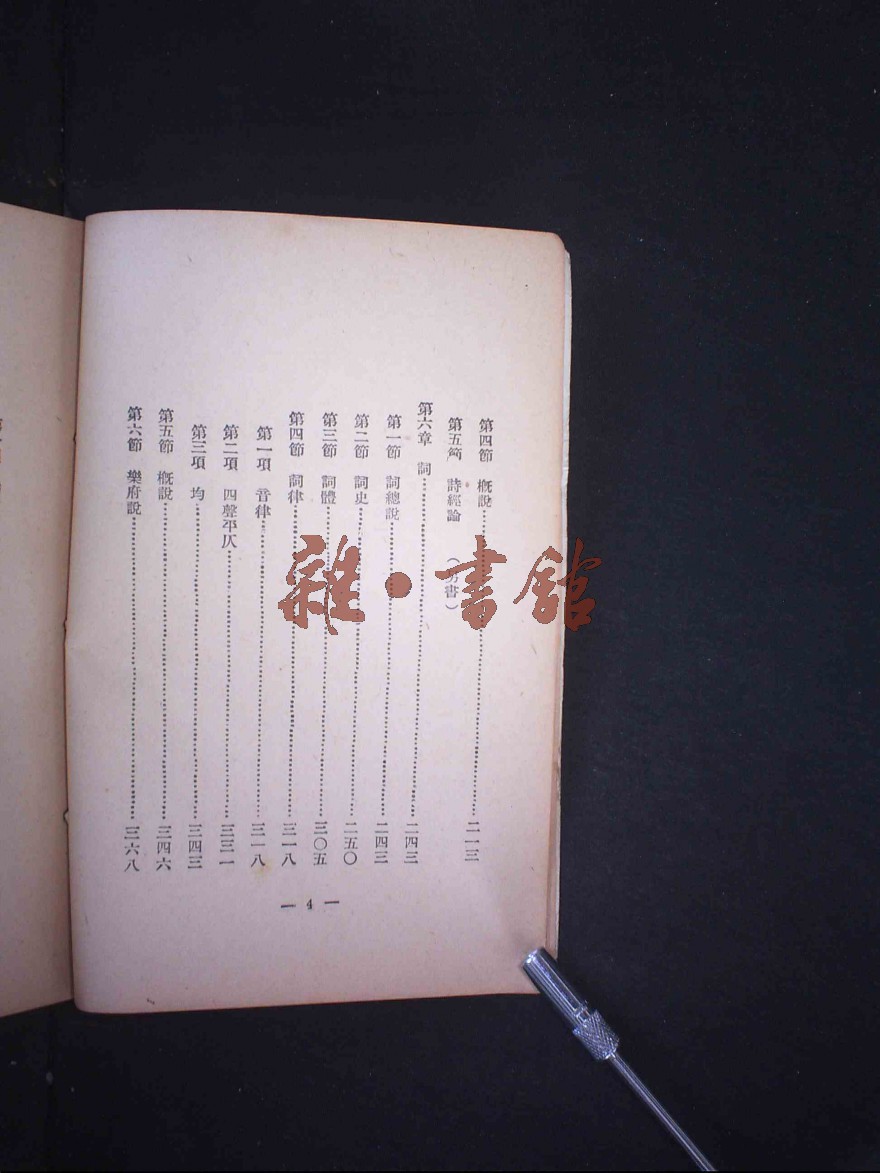 第四節 概説……二一三
第五節 詩經論 （另書）
第六章 詞……二四三
第一節 詞總説……二四三
第二節 詞史……二五〇
第三節 詞體……三〇五
第四節 詞律……三一八
第一項 音律……三一八
第二項 四聲平仄……三三一
第三項 均……三四三
第五節 概説……三四六
第六節 樂府説……三六八
— 4 —
雜·書館